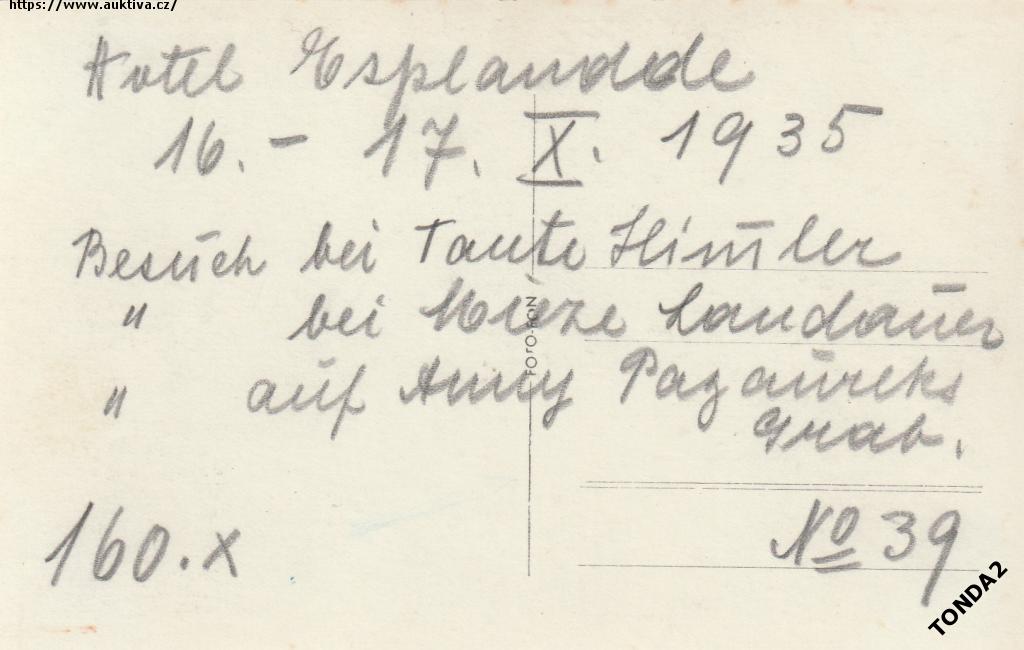 https://www.auktiva.cz/
Hotel Esplandde
16. - 17. X. 1935
Besuch bei Tante Himler
" bei Mieze Landauer
" auf Anny Pazaureks
Grab.
FOTO-FON
160.x
No 39
TONDA2